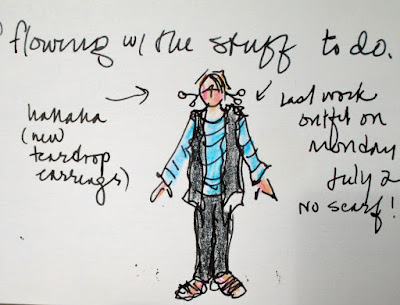 flowing w/ the stuff to do.
hahaha
(new
teardrop
earrings)
Last work
outfit on
Monday
July 2
No scarf!